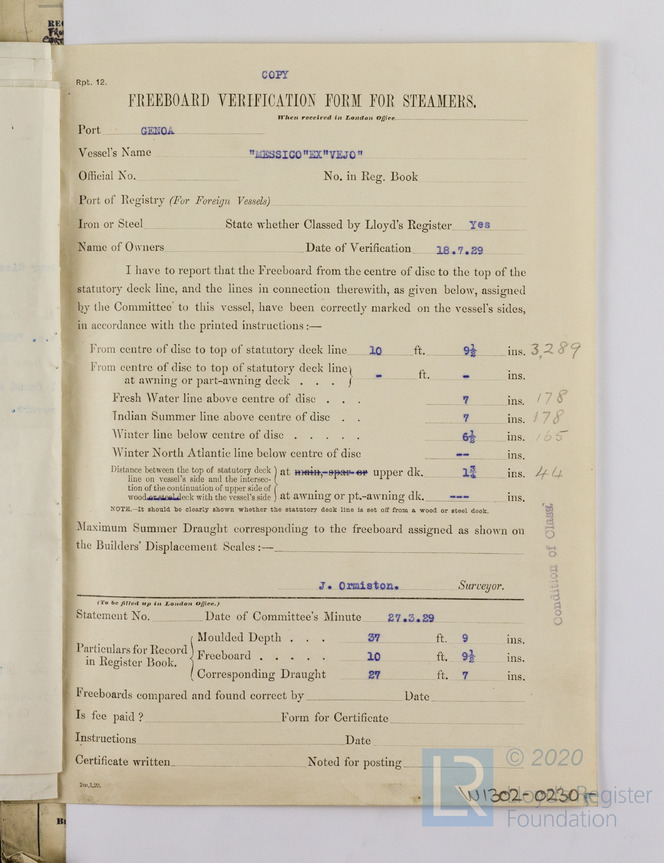 COPY
Rpt. 12.
FREEBOARD VERIFICATION FORM FOR STEAMERS.
When received in London Office
Port GENOA
Vessel's Name "MESSICO"EX"VEJO"
Official No. No. in Reg. Book
Port of Registry (For Foreign Vessels)
Iron or Steel State whether Classed by Lloyd's Register Yes
Name of Owners Date of Verification 18.7.29
I have to report that the Freeboard from the centre of disc to the top of the
statutory deck line, and the lines in connection therewith, as given below, assigned
by the Committee to this vessel, have been correctly marked on the vessel's sides,
in accordance with the printed instructions :—
From centre of disc to top of statutory deck line 10 ft. 9½ ins. 3,289
From centre of disc to top of statutory deck line
at awning or part-awning deck . . . - ft. - ins.
Fresh Water line above centre of disc . . . 7 ins. 178
Indian Summer line above centre of disc . . 7 ins. 178
Winter line below centre of disc . . . . . 6½ ins. 165
Winter North Atlantic line below centre of disc -- ins.
Distance between the top of statutory deck
line on vessel's side and the intersec-
tion of the continuation of upper side of
wood or steel deck with the vessel's side
at main, spar or upper dk. 1¾ ins. 44
at awning or pt.-awning dk. --- ins.
NOTE.—It should be clearly shown whether the statutory deck line is set off from a wood or steel deck.
Condition of Class
Maximum Summer Draught corresponding to the freeboard assigned as shown on
the Builders' Displacement Scales :—
J. Ormiston. Surveyor.
(To be filled up in London Office.)
Statement No. Date of Committee's Minute 27.3.29
Particulars for Record
in Register Book.
Moulded Depth . . . 37 ft. 9 ins.
Freeboard . . . . . 10 ft. 9½ ins.
Corresponding Draught 27 ft. 7 ins.
Freeboards compared and found correct by Date
Is fee paid ? Form for Certificate
Instructions Date
Certificate written Noted for posting
LR
© 2020
Lloyd's Register
Foundation
W1302-0230